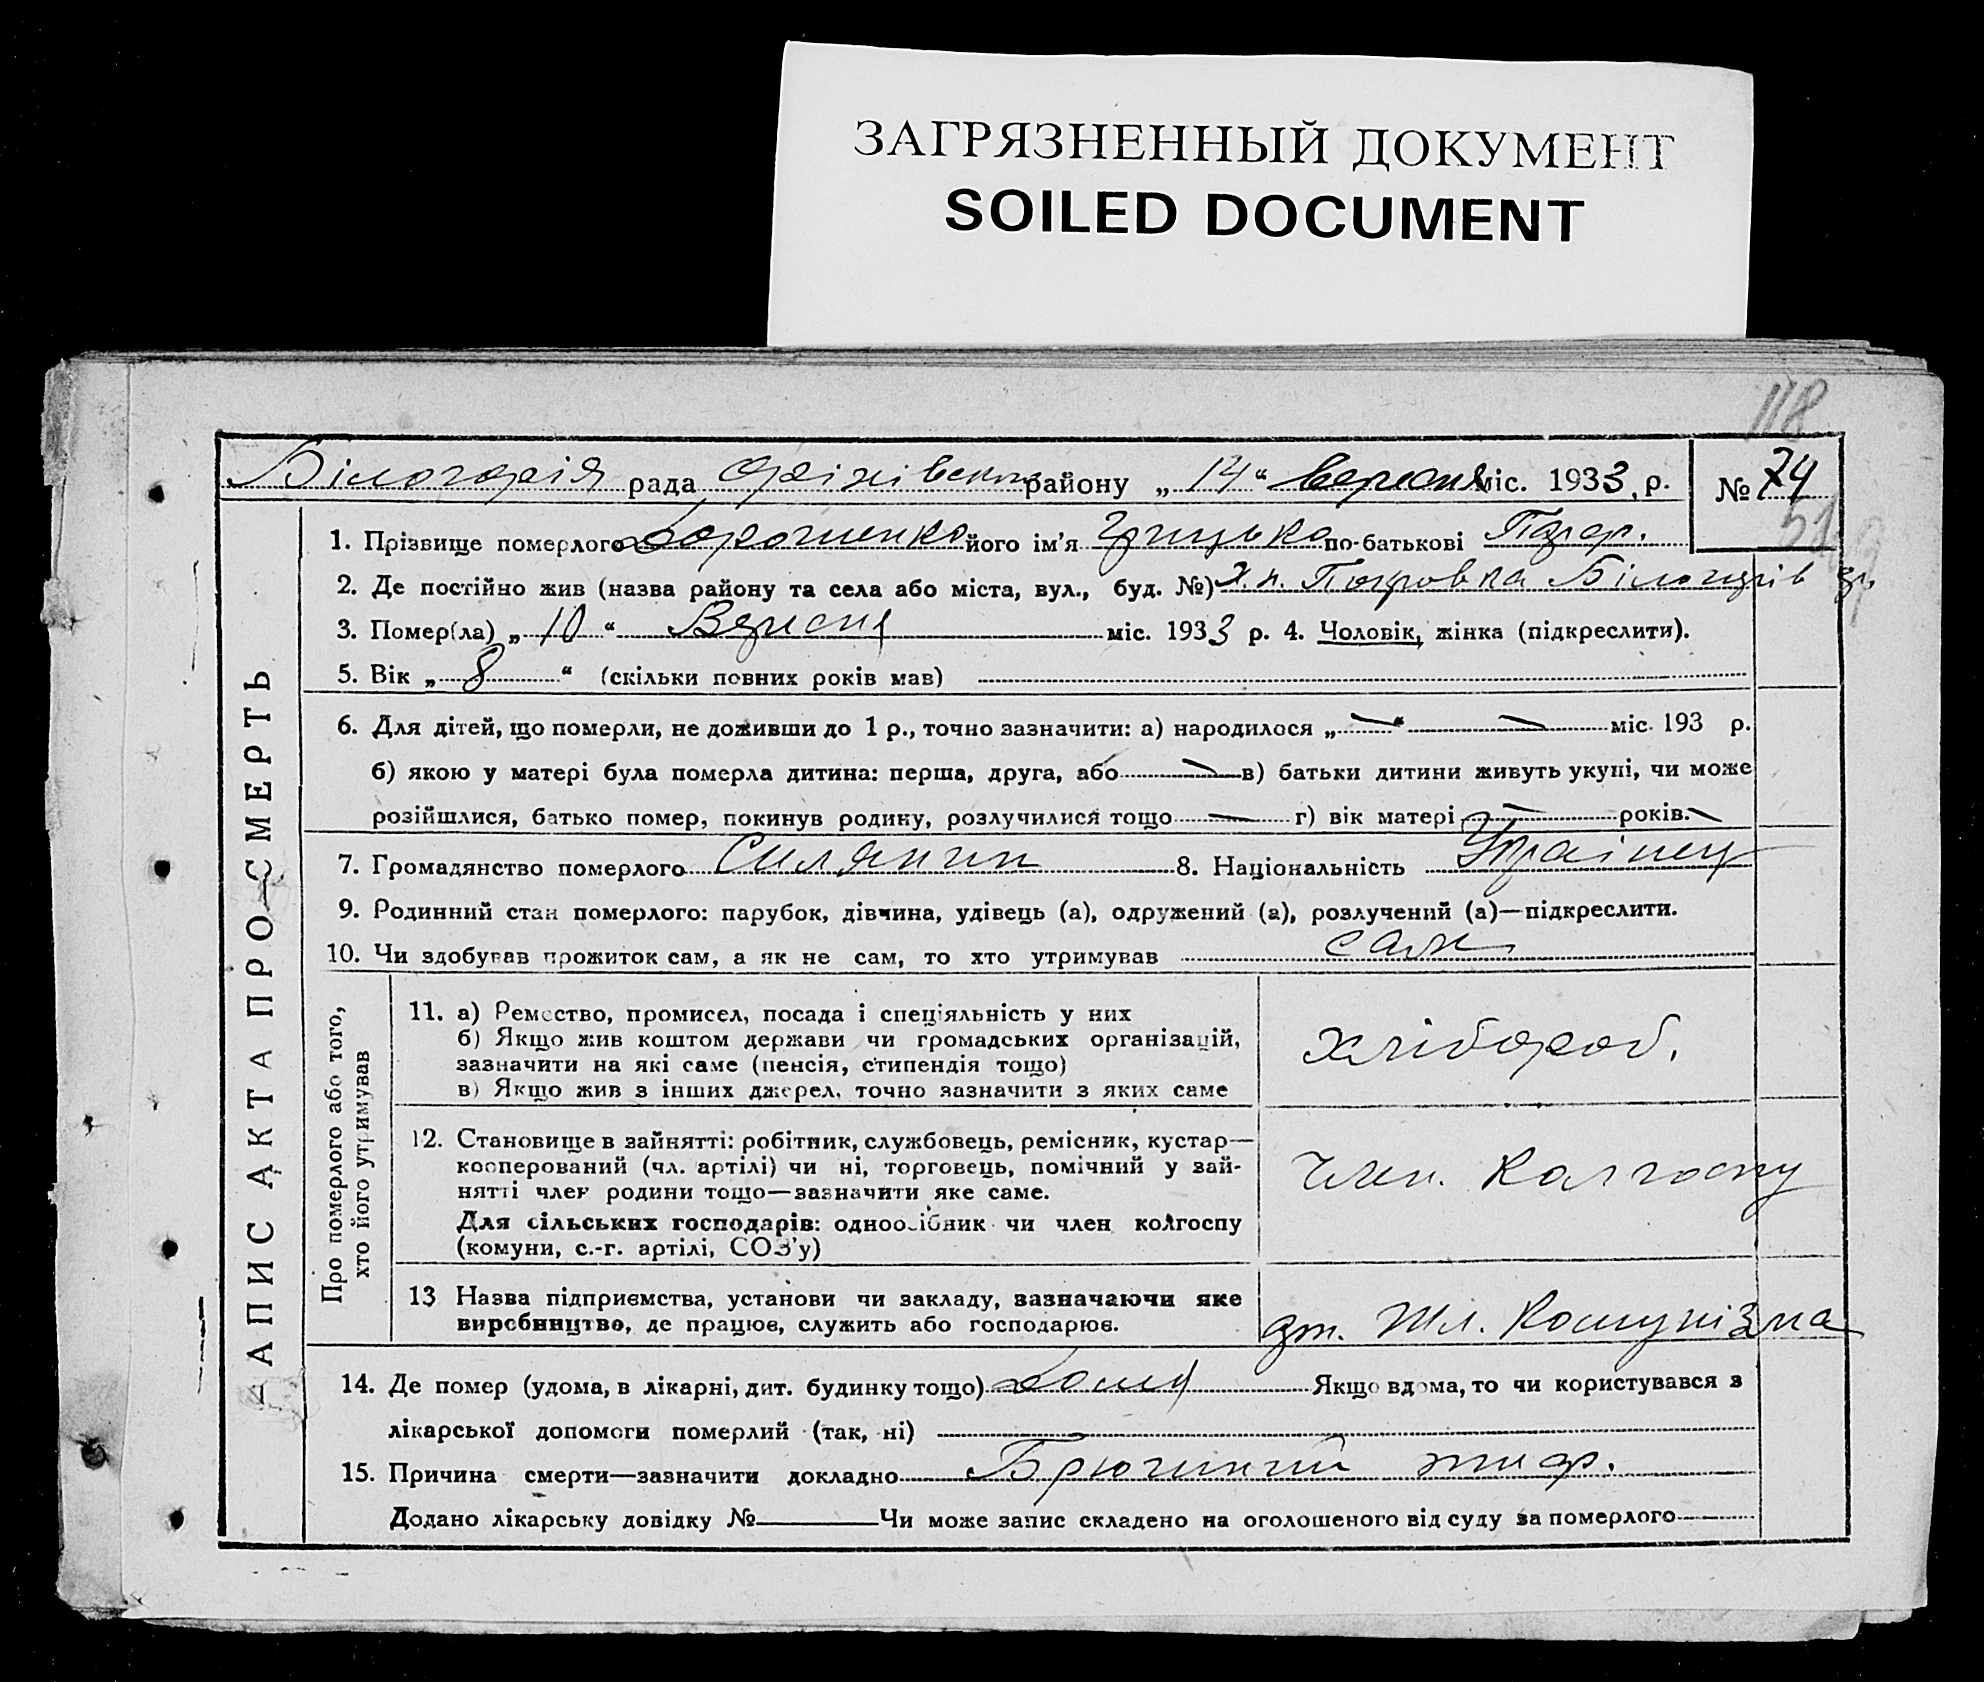 ЗАГРЯЗНЕННЫЙ ДОКУМЕНТ
SOILED DOCUMENT
118
Білогорія рада району „14“ вересня міс. 1933 р. № 74
1. Прізвище померлого Дорошенко його ім'я Грицько по-батькові
2. Де постійно жив (назва району та села або міста, вул., буд. №) х. н. Покровка
3. Помер(ла) „10“ Вересня міс. 1933 р. 4. Чоловік, жінка (підкреслити).
5. Вік „8“ (скільки повних років мав)
6. Для дітей, що померли, не доживши до 1 р., точно зазначити: а) народилося „—“ — міс. 193 р.
б) якою у матері була померла дитина: перша, друга, або — в) батьки дитини живуть укупі, чи може
розійшлися, батько помер, покинув родину, розлучилися тощо — г) вік матері — років. —
7. Громадянство померлого Силянин 8. Національність Українец
9. Родинний стан померлого: парубок, дівчина, удівець (а), одружений (а), розлучений (а)—підкреслити.
10. Чи здобував прожиток сам, а як не сам, то хто утримував сам
ЗАПИС АКТА ПРО СМЕРТЬ
Про померлого або того,
хто його утримував
11. а) Ремество, промисел, посада і спеціяльність у них
б) Якщо жив коштом держави чи громадських організацій,
зазначити на які саме (пенсія, стипендія тощо)
в) Якщо жив з інших джерел, точно зазначити з яких саме
хлібороб.
12. Становище в зайнятті: робітник, службовець, ремісник, кустар—
кооперований (чл. артілі) чи ні, торговець, помічний у зай-
нятті член родини тощо—зазначити яке саме.
Для сільських господарів: одноосібник чи член колгоспу
(комуни, с.-г. артілі, СОЗ'у)
член. колгоспу
13 Назва підприємства, установи чи закладу, зазначаючи яке
виробництво, де працює, служить або господарює.
Шл. Комунізма
14. Де помер (удома, в лікарні, дит. будинку тощо) Дома Якщо вдома, то чи користувався з
лікарської допомоги померлий (так, ні)
15. Причина смерти—зазначити докладно Брюшний тиф.
Додано лікарську довідку № Чи може запис складено на оголошеного від суду за померлого